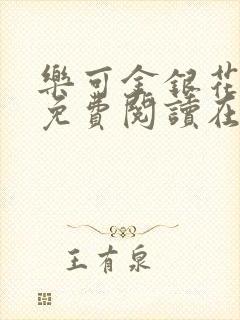 樂可金銀花
免費閱讀在
王有泉